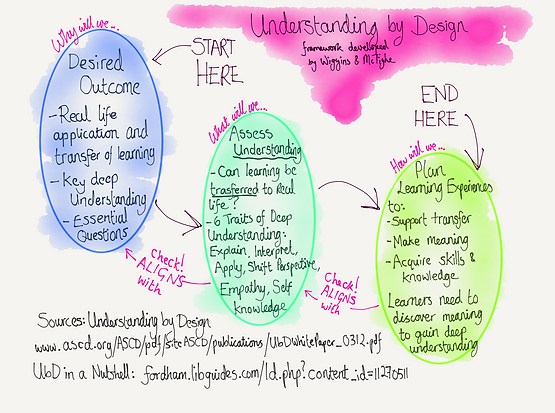 Understanding by Design
framework developed
by Wiggins & McTighe
Why will we...
START
HERE
Desired
Outcome
-Real life
application and
transfer of learning
-Key deep
Understanding
-Essential
Questions
What will we...
Assess
Understanding
-Can learning be
trasferred to Real
life?
-6 Traits of Deep
Understanding:
Explain, Interpret,
Apply, Shift Perspective,
Empathy, Self
knowledge
END
HERE
How will we...
Plan
Learning Experiences
to:
-Support transfer
-Make meaning
-Acquire skills &
knowledge
Learners need to
discover meaning
to gain deep
understanding
Check!
ALIGNS
with
Check!
ALIGNS
with
Sources: Understanding by Design
www.ascd.org/ASCD/pdf/siteASCD/publications/UbDwhitePaper_0312.pdf
UbD in a Nutshell: fordham.libguides.com/ld.php?content_id=11270511